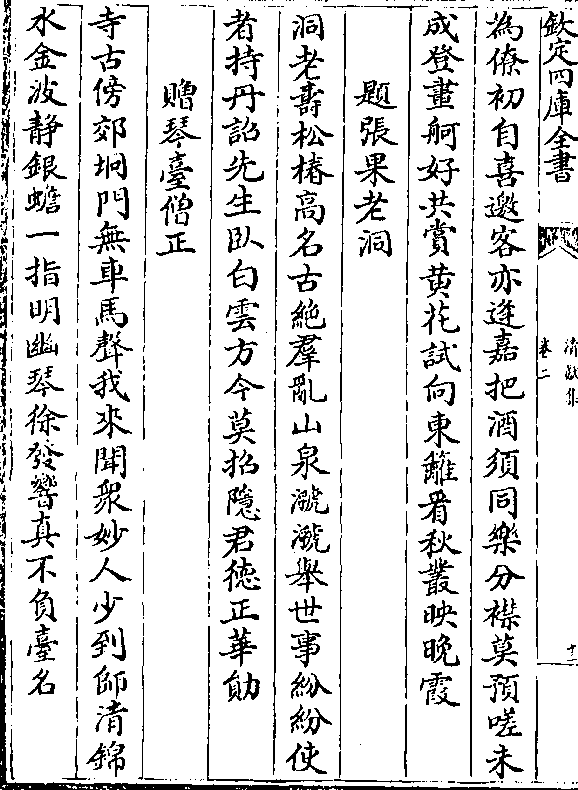 欽定四庫全書
清獻集
卷二
十一
為僚初自喜邀客亦逢嘉把酒須同樂分襟莫預嗟未
成登畫舸好共賞黄花試向東籬看秋叢映晚霞
題張果老洞
洞老壽松椿高名古絶羣亂山泉㶁㶁舉世事紛紛使
者持丹詔先生臥白雲方今莫招隱君德正華勛
贈琴臺僧正
寺古傍郊坰門無車馬聲我來聞衆妙人少到師清錦
水金波静銀蟾一指明幽琴徐發響真不負臺名